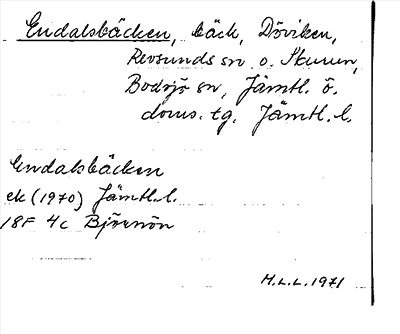 Endalsbäcken, bäck, Döviken,
Revsunds sn o. Skurun,
Bodsjö sn, Jämtl. ö.
doms. tg. Jämtl. l.
Endalsbäcken
ek (1970) Jämtl. l.
18F 4c Björnön
H.L.L. 1971